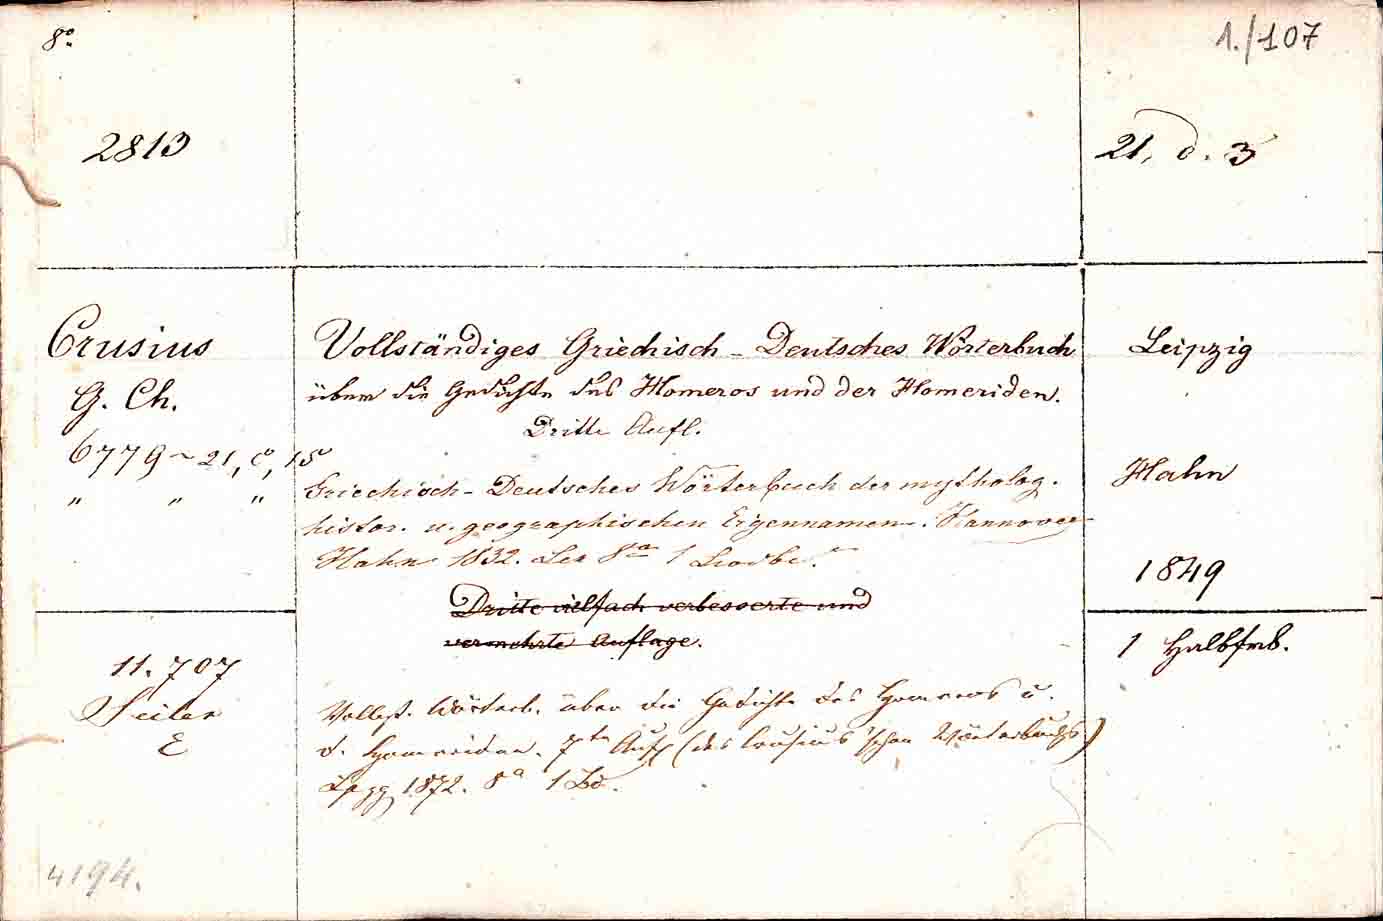 8°
1./107
2813
21, d. 3
Crusius
G. Ch.
Vollständiges Griechisch-Deutsches Wörterbuch
über die Gedichte des Homeros und der Homeriden.
Dritte Aufl.
Leipzig
6779 ~ 21, c, 15
" " "
Griechisch-Deutsches Wörterbuch der mytholog.
histor. u. geographischen Eigennamen. Hannover
Hahn 1832. Lex 8° 1
Hahn
1849
Dritte vielfach verbesserte und
vermehrte Auflage.
1 Halbfrnb.
11.707
Seiler
E
Vollst. Wörterb. über die Gedichte des Homeros u.
d. Homeriden. 7te Aufl (des Crusius'schen Wörterbuchs)
Lpzg 1872. 8° 1 Bd.
4194.